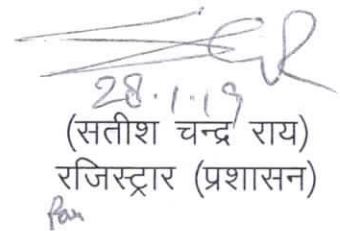 28.1.19
(सतीश चन्द्र राय)
रजिस्ट्रार (प्रशासन)